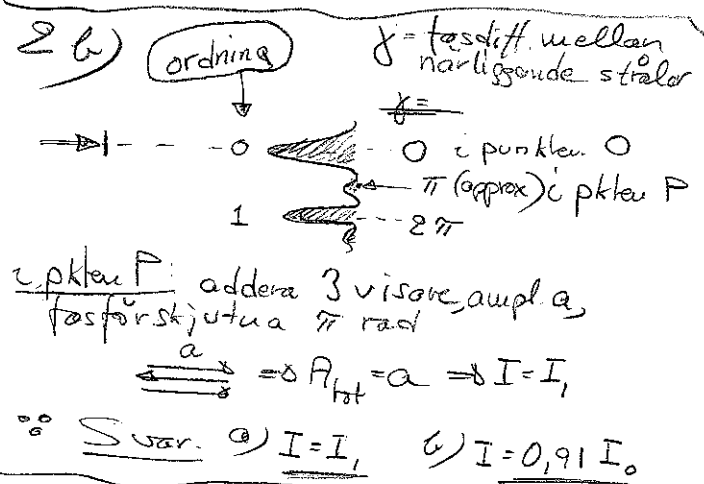 2 b) ordning γ = fasdiff. mellan
närliggande strålar
γ =
0 0 i punkten O
π (approx) i pkten P
1 2π
i pkten P: addera 3 visare, ampl. a,
fasförskjutna π rad
a ⇒ A_tot = a ⇒ I = I₁
∴ Svar. a) I = I₁ b) I = 0,91 I₀